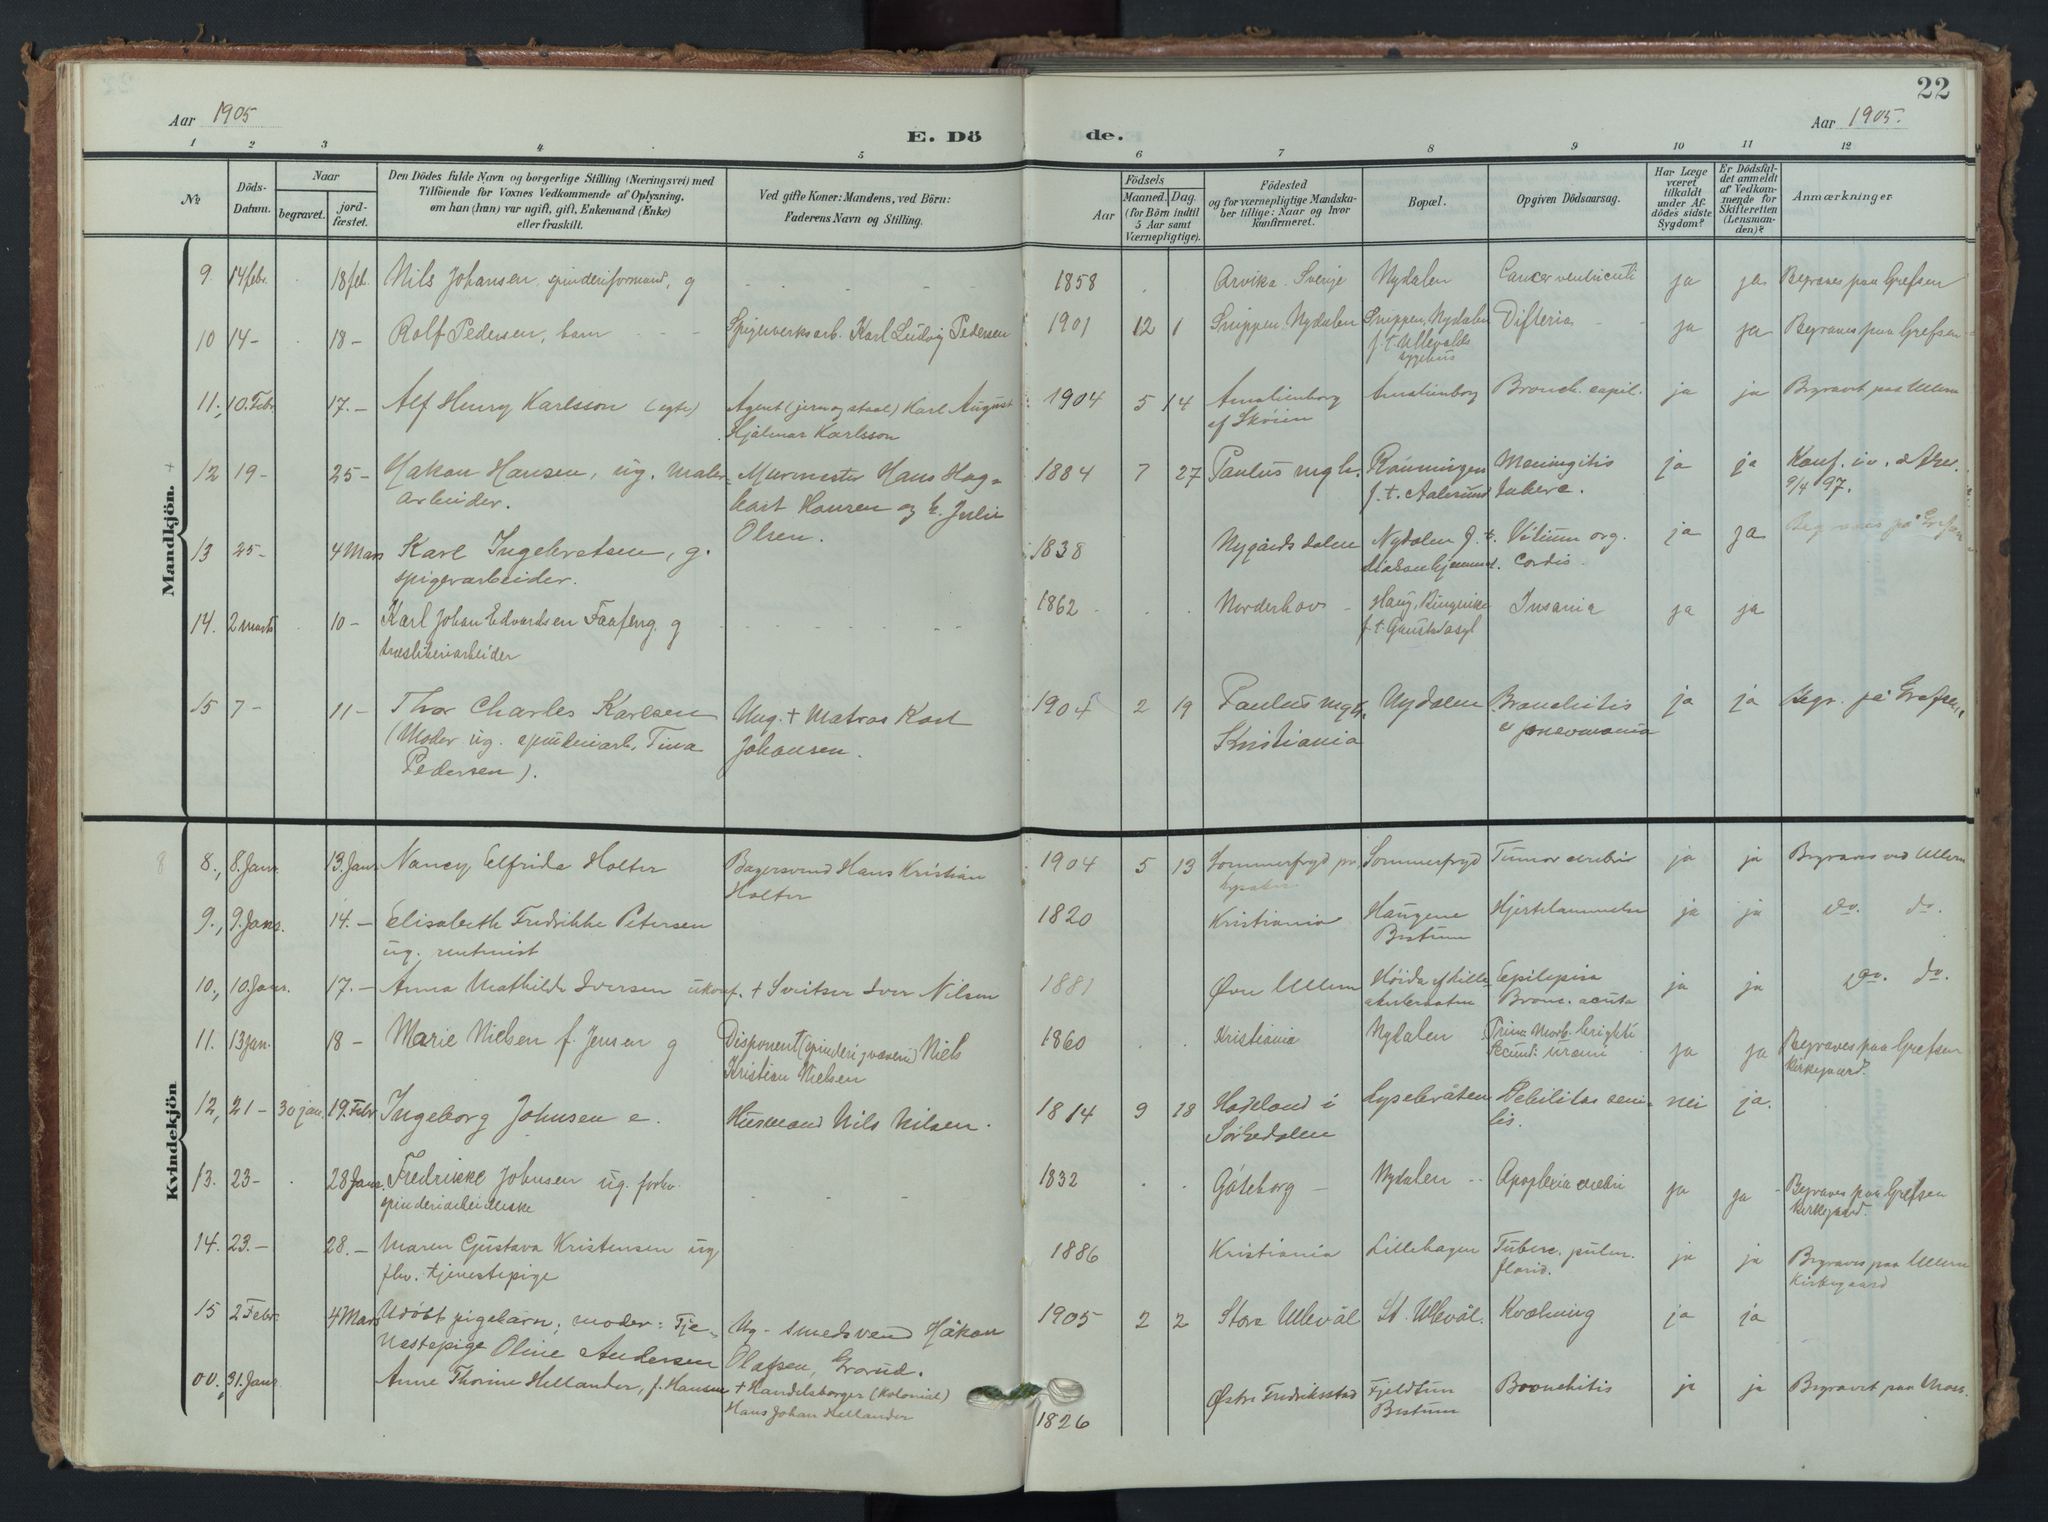 22
Aar 1905
E. Dö de.
Aar 1905.
1 2 3 4 5 6 7 8 9 10 11 12
№
Döds-Datum.
Naar
begravet.
jord-fæstet.
Den Dödes fulde Navn og borgerlige Stilling (Næringsvei) med
Tilföiende for Voxnes Vedkommende af Oplysning,
om han (hun) var ugift, gift, Enkemand (Enke)
eller fraskilt.
Ved gifte Koner: Mandens, ved Börn:
Faderens Navn og Stilling.
Födsels
Aar
Maaned. Dag.
(for Börn indtil
5 Aar samt
Værnepligtige).
Födested
og for værnepligtige Mandska-
ber tillige: Naar og hvor
konfirmeret.
Bopæl.
Opgiven Dödsaarsag.
Har Læge
været
tilkaldt
under Af-
dödes sidste
Sygdom?
Er Dödsfal-
det anmeldt
af Vedkom-
mende for
Skifteretten
(Lensman-
den)?
Anmærkninger.
Mandkjön.
9. 14 febr. 18 feb. Nils Johansen, spinderiformand, g 1858 Arvika. Sverije Nydalen Cancer ventriculi ja ja Begraves paa Grefsen
10 14 - 18 - Rolf Pedersen, barn Spigerverksarb. Karl Ludvig Pedersen 1901 12 1 Snippen, Nydalen Snippen, Nydalen Difteria ja ja Begraves paa Grefsen
f. t. Ullevolds
sygehus
11., 10. Febr 17. - Alf Henry Karlsson (egte) Agent (jern og staal) Karl August 1904 5 14 Amalienborg Amalienborg Bronch. capil. ja ja Begravet paa Ullern
Hjalmar Karlsson af Skøien
12 19 - 25 - Hakon Hansen, ug. maler- Murmester Hans Hag- 1884 7 27 Paulus mgh. Rönningen Meningitis ja ja
arbeider. bart Hansen og h. Julie f. t. Aalesund tuberc. 97.
Olsen.
13 25 - 4 Mars Karl Ingebretsen, g. 1838 Nygårdsdalen Nydalen f. t. Vitium org. ja ja Begraves på Grefsen
spigerarbeider. cordis.
14. 2 marts 10 - Karl Johan Edvardsen Faafeng. g 1862 Norderhov Haug, Ringerike Insania ja ja
træsliberiarbeider f. t. Gaustadasyl
15 7 - 11 - Thor Charles Karlsen Ung. + Matros Karl 1904 2 19 Paulus mgh. Nydalen Bronchitis ja ja Begr. på Grefsen
(Moder ug. spinderiarb. Tina Johansen. Kristiania
Pedersen).
Kvindekjön
8
8., 8. Janr. 13. Janr. Nancy Elfrida Holter Bagersvend Hans Kristian 1904 5 13 Sommerfryd Sommerfryd Tumor cerebri ja ja Begraves ved Ullern
Holter
9., 9. Janr. 14. - Elisabeth Fredrikke Petersen 1820 Kristiania Haugene Hjertelammelse ja ja do. do.
ug. rentenist Bestum
10., 10. Janr. 17. - Anna Mathilde Iversen ukonf. + Sveitser Iver Nilsen 1881 Øvre Ullern Epilepsia ja ja do. do.
Bronc. acuta
11. 13 jan. 18 - Marie Nielsen f. Jensen g Disponent (spinderi, væveri) Niels 1860 Kristiania Nydalen Prim: Morb. brighti ja ja Begraves paa Grefsen
Kristian Nielsen Secund: urämi kirkegaard.
12, 21 - 30 jan. 19. Febr Ingeborg Johnsen e. Husmand Nils Nilsen. 1814 9 18 Hadeland i Lysebråten Debilitas seni- nei ja.
Sørkedalen lis.
13. 23 - 28 Janr. Fredrikke Johnsen ug. forhv. 1832 Göteborg - Nydalen Apoplexia cerebri ja ja Begraves paa Grefsen
spinderiarbeiderske kirkegaard.
14. 23. - 28. - Maren Gustava Kristensen ug 1886 Kristiania Lillehagen Tuberc. pulm. ja ja Begraves paa Ullern
fhv. tjenestepige florid. Kirkegaard
15 2 Febr. 4 Mars Udöbt pigebarn; moder: Tje- Ug. smedsvend Håkon 1905 2 2 Store Ullevål St. Ullevål. Kvælning ja ja
nestepige Oline Andersen Olafsen, Grorud.
00. 31. Janr. Anne Thorine Hellander, f. Hansen + Handelsborger (kolonial) 1826 Østre Fredriksstad Fjeldtun Bronchitis ja ja Begravet paa
Hans Johan Hellander Bestum